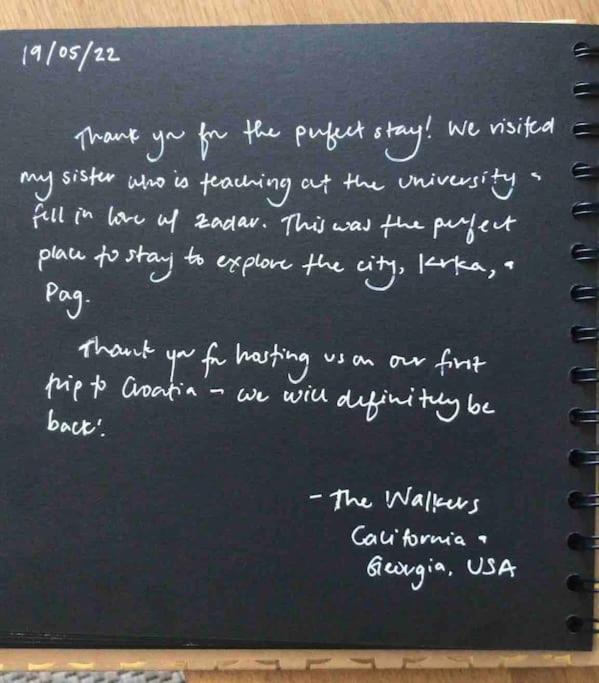 19/05/22
Thank you for the perfect stay! We visited
my sister who is teaching at the university &
fell in love w/ Zadar. This was the perfect
place to stay to explore the city, Krka, &
Pag.
Thank you for hosting us on our first
trip to Croatia – we will definitely be
back!
- The Walkers
California &
Georgia, USA